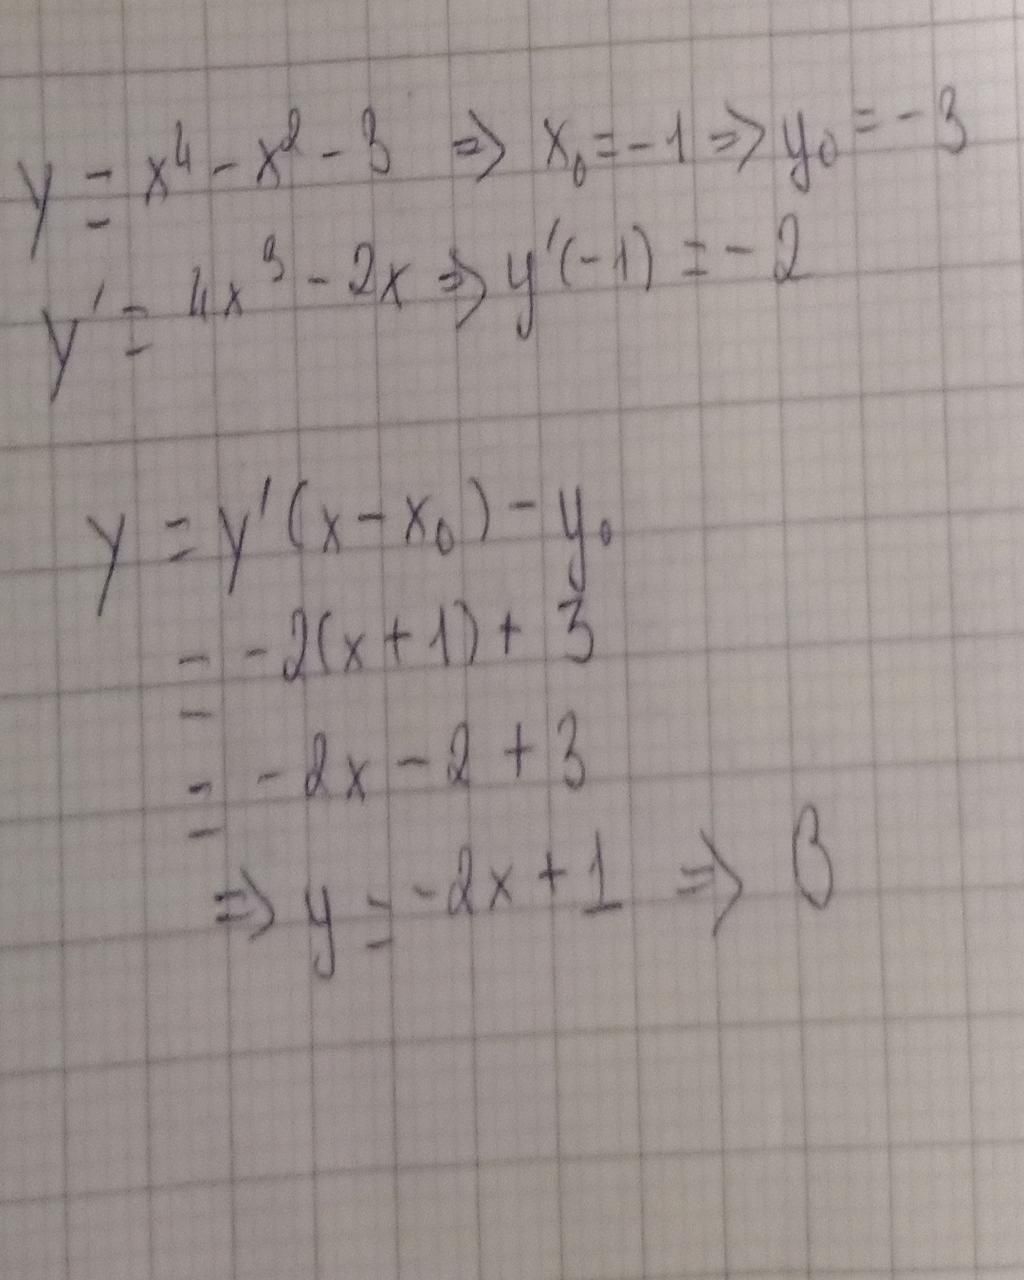 y = x⁴ - x² - 3 ⇒ x₀ = -1 ⇒ y₀ = -3
y' = 4x³ - 2x ⇒ y'(-1) = -2
y = y'(x - x₀) - y₀
= -2(x + 1) + 3
= -2x - 2 + 3
⇒ y = -2x + 1 ⇒ B